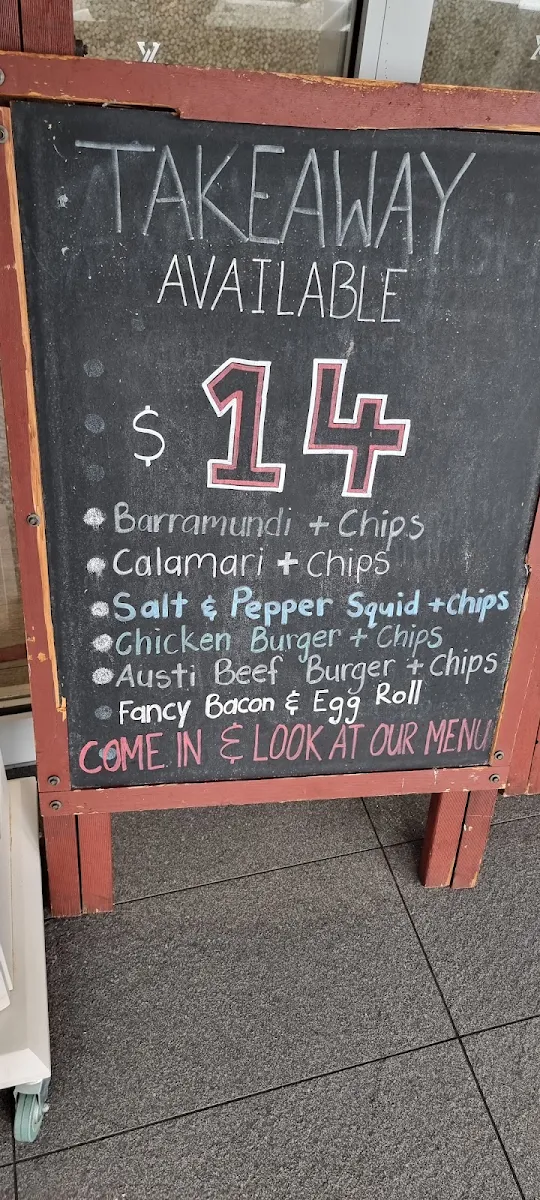 TAKEAWAY
AVAILABLE
$ 14
Barramundi + Chips
Calamari + Chips
Salt & Pepper Squid + chips
Chicken Burger + Chips
Austi Beef Burger + Chips
Fancy Bacon & Egg Roll
COME IN & LOOK AT OUR MENU